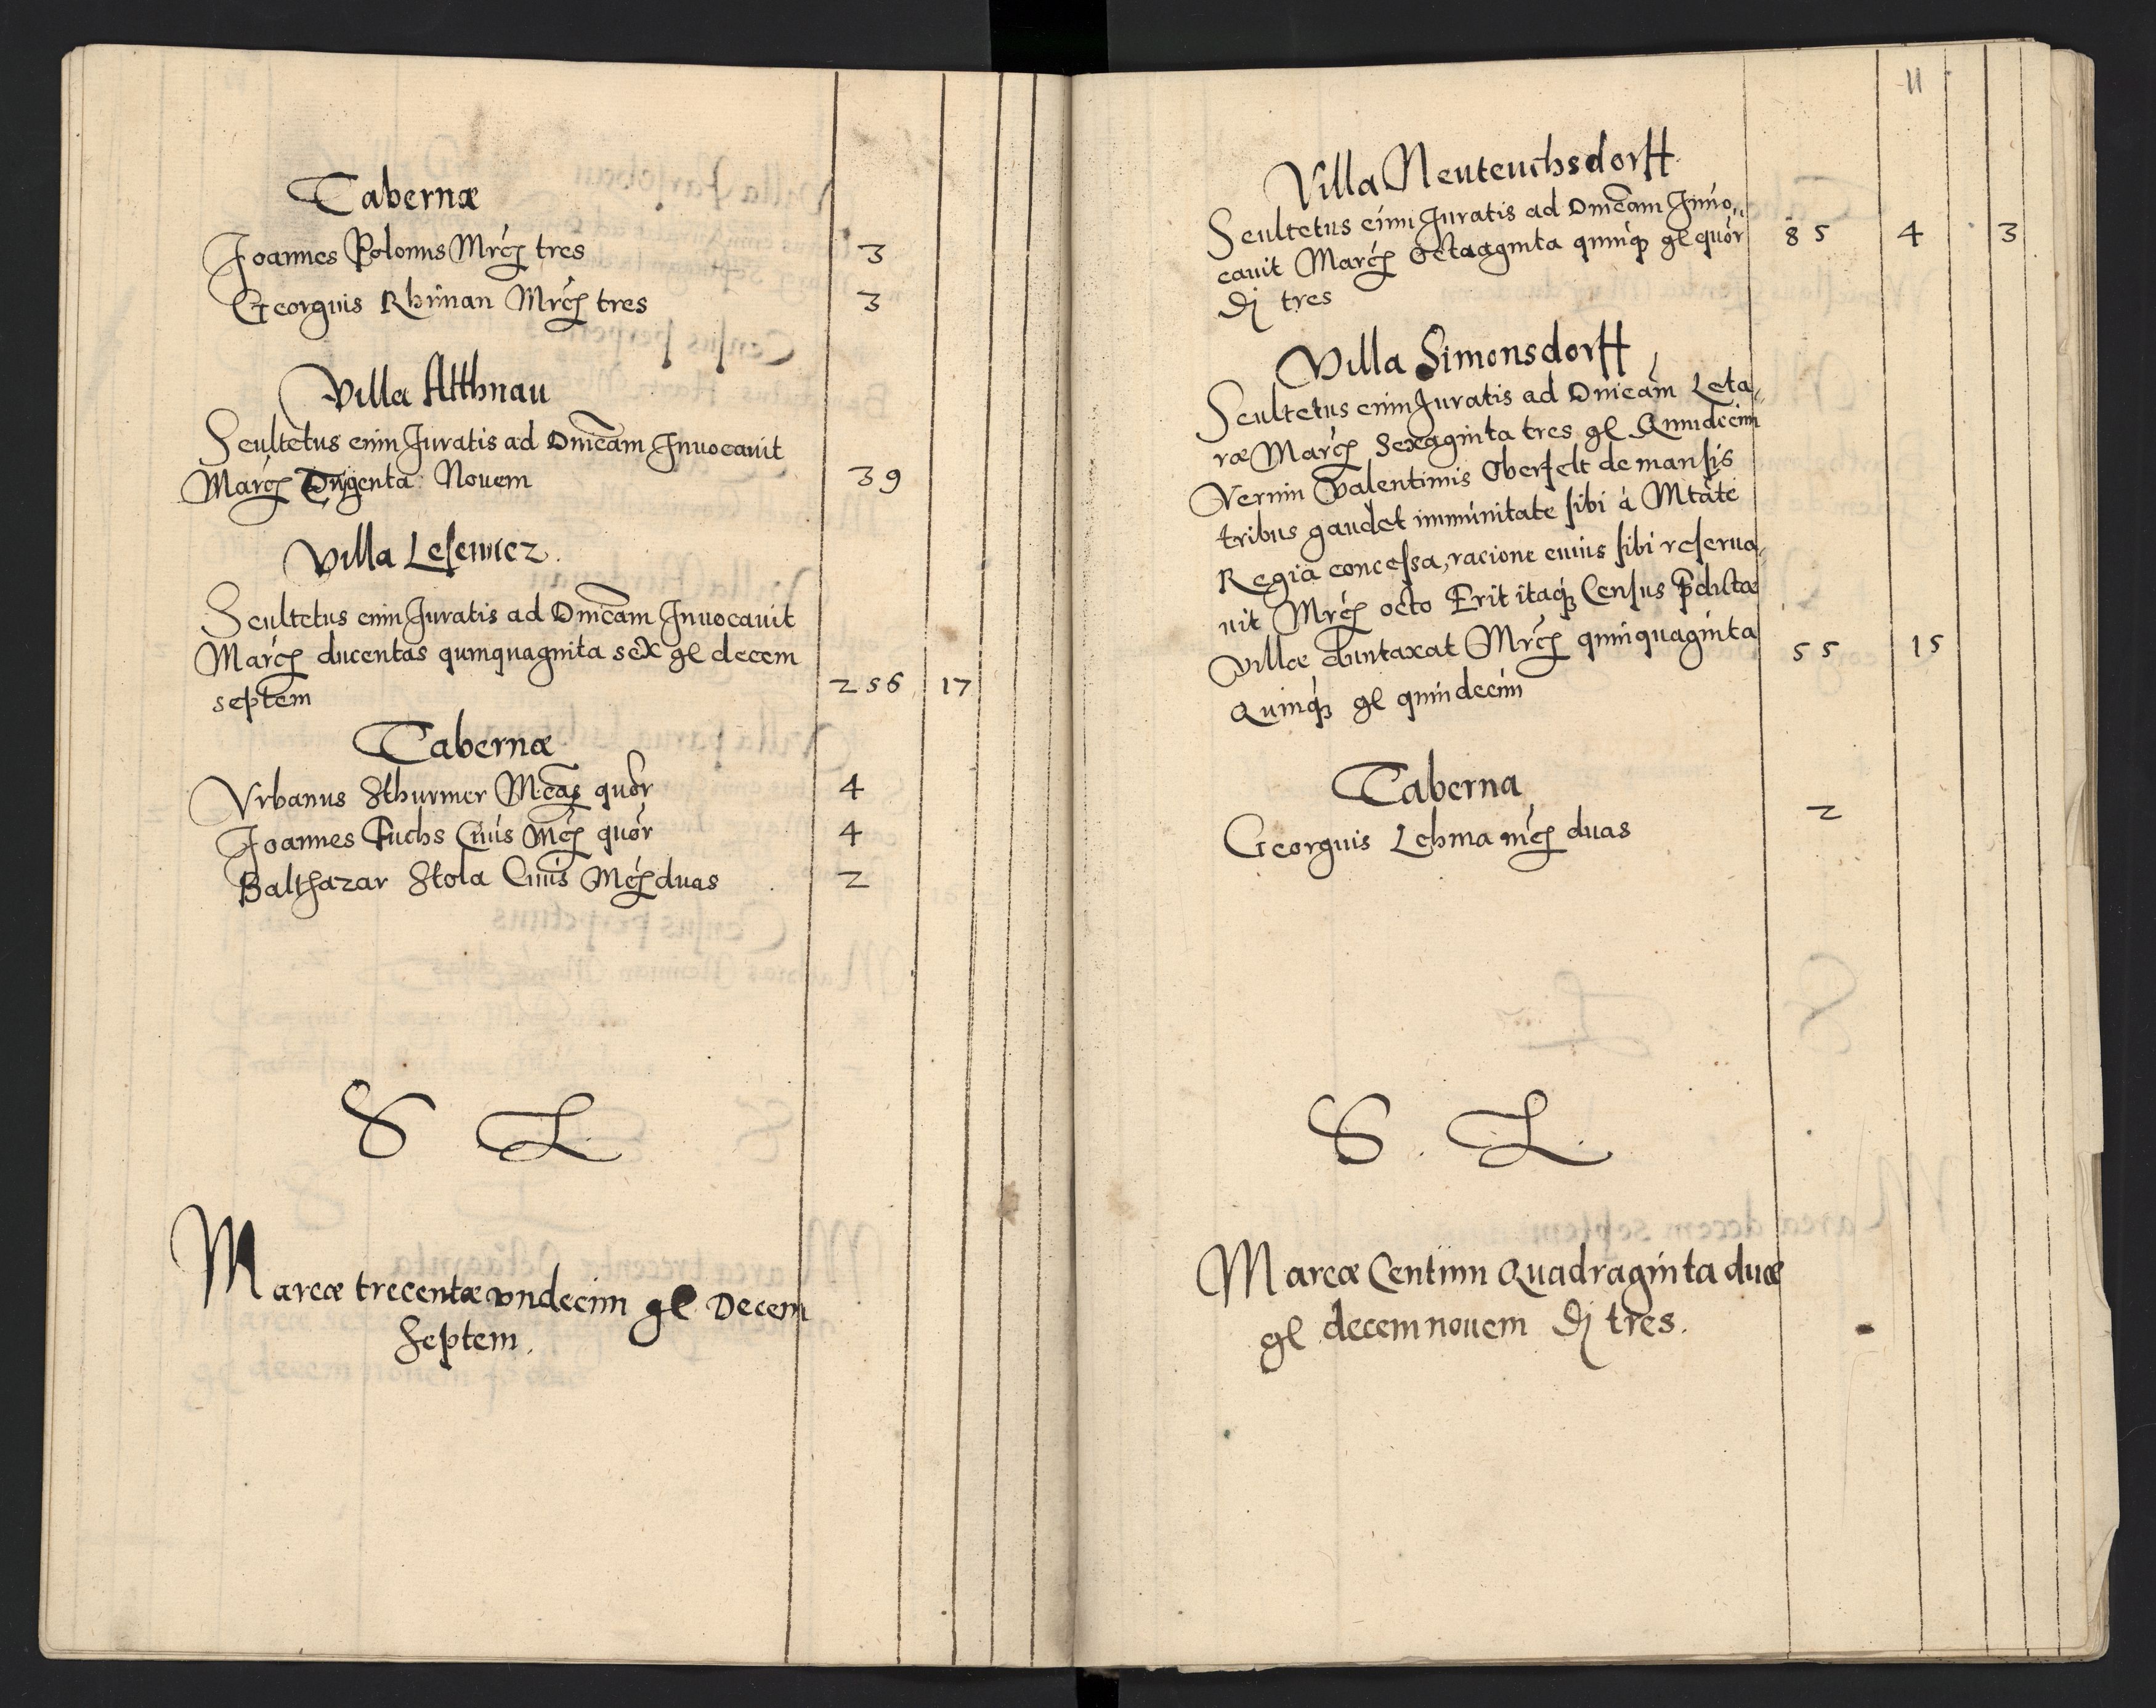 Tabernæ
Joannes Polonus Mrcs tres 3
Georgius Rhiman Mrcs tres 3
Villa Altthnau
Scultetus cum Juratis ad Dnicam Jnuocauit
Marcs Trigenta Nouem 39
Villa Lesewicz.
Scultetus cum Juratis ad Dnicam Jnuocauit
Marcs ducentas quinquaginta sex gl decem
septem 256 17
Tabernæ
Vrbanus Sthurmer Mcas quor 4
Joannes Fuchs Ciuis Mcs quor 4
Balthazar Stola Ciuis Mcs duas 2
S L
Marcæ trecentæ vndecim gl Decem
Septem.
11
Villa Neuteuchsdorff
Scultetus cum Juratis ad Dnicam Jnuo„
cauit Marcs Octaaginta quinq gl quor 85 4 3
d tres
Villa Simonsdorff
Scultetus cum Juratis ad Dnicam Leta„
ræ Marcs Sexaginta tres gl Quindecim
Verum Valentinus Oberfelt de mansis
tribus gaudet immunitate sibi à Mtate
Regia concessa, racione cuius sibi reserua„
uit Mrcs octo Erit itaq Census pdictæ
villæ duntaxat Mrcs quinquaginta 55 15
Quinq gl quindecim
Taberna
Georgius Lehma mcs duas 2
S. L.
Marcæ Centum Quadraginta duæ
gl decem nouem d tres.